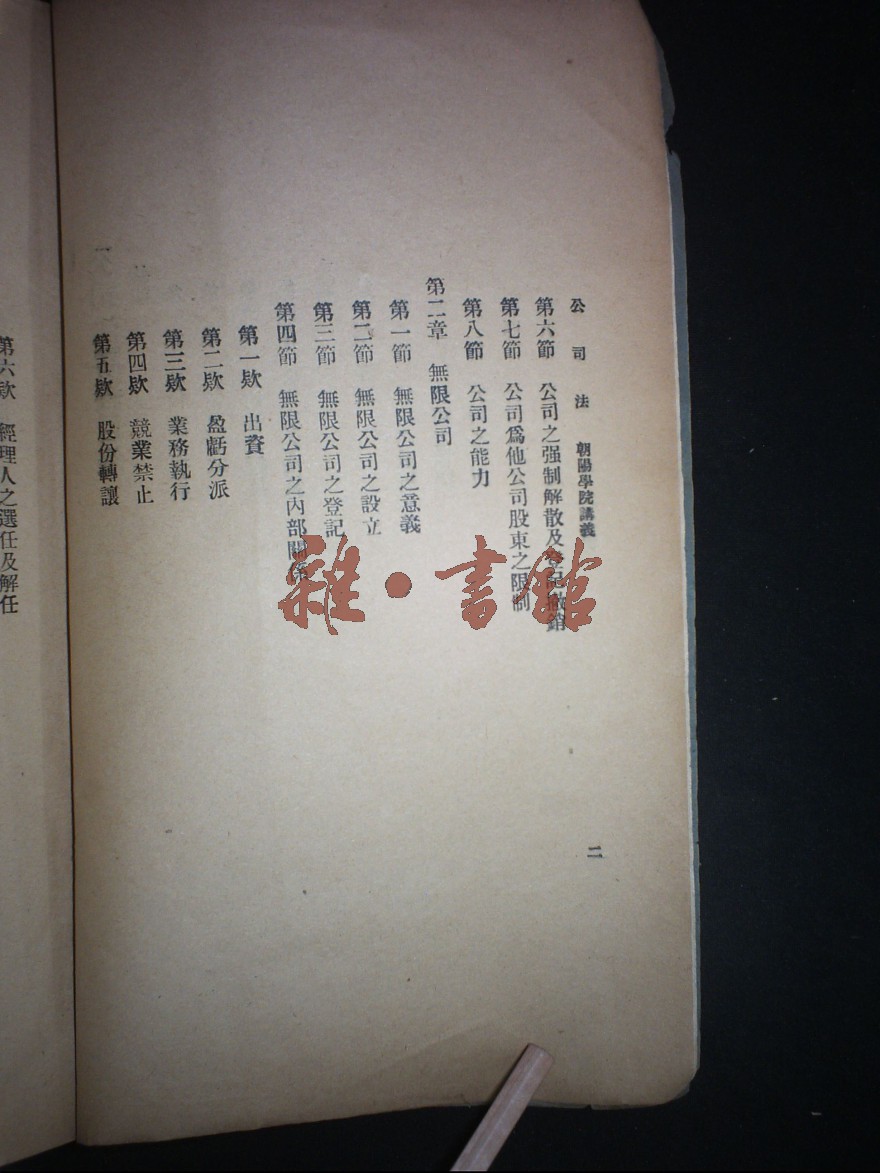 公司法 朝陽學院講義
第六節 公司之强制解散及登記撤銷
第七節 公司爲他公司股東之限制
第八節 公司之能力
第二章 無限公司
第一節 無限公司之意義
第二節 無限公司之設立
第三節 無限公司之登記
第四節 無限公司之內部關係
第一欵 出資
第二欵 盈虧分派
第三欵 業務執行
第四欵 競業禁止
第五欵 股份轉讓
二
第六欵 經理人之選任及解任
雜·書館